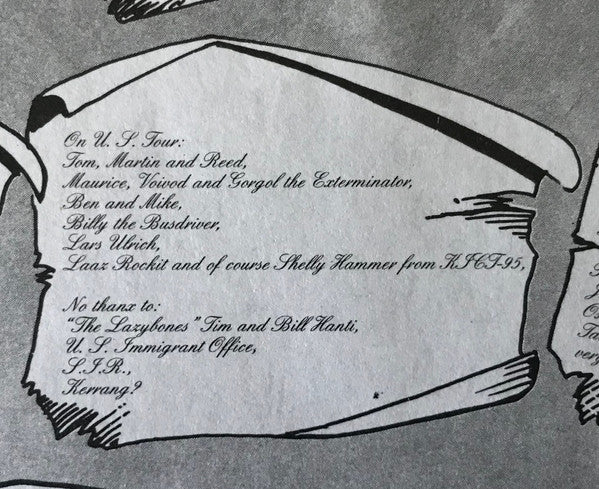 On U. S. Tour:
Tom, Martin and Reed,
Maurice, Voivod and Gorgol the Exterminator,
Ben and Mike,
Billy the Busdriver,
Lars Ulrich,
Laaz Rockit and of course Shelly Hammer from KJCT-95,
No thanx to:
"The Lazybones" Tim and Bill Hanti,
U. S. Immigrant Office,
S.I.R.,
Kerrang?